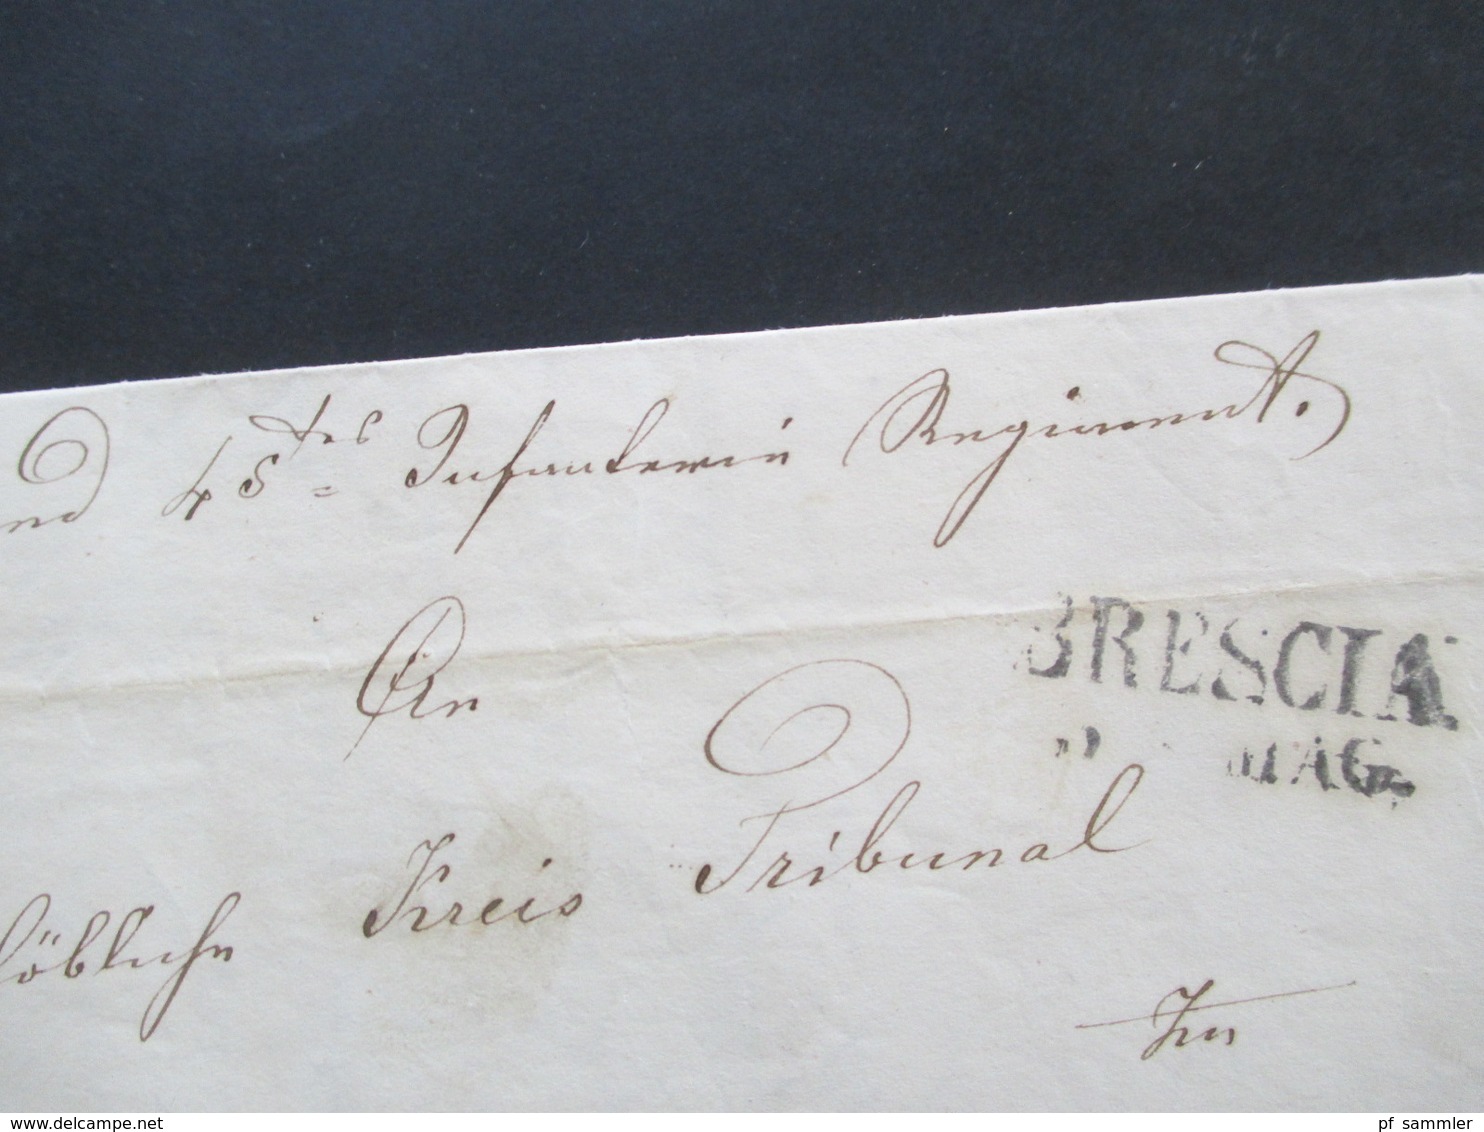 45tes Infanterie Regiment.
An
BRESCIA
MAG.
löbliche Kreis Tribunal
In
www.delcampe.net
pf_sammler